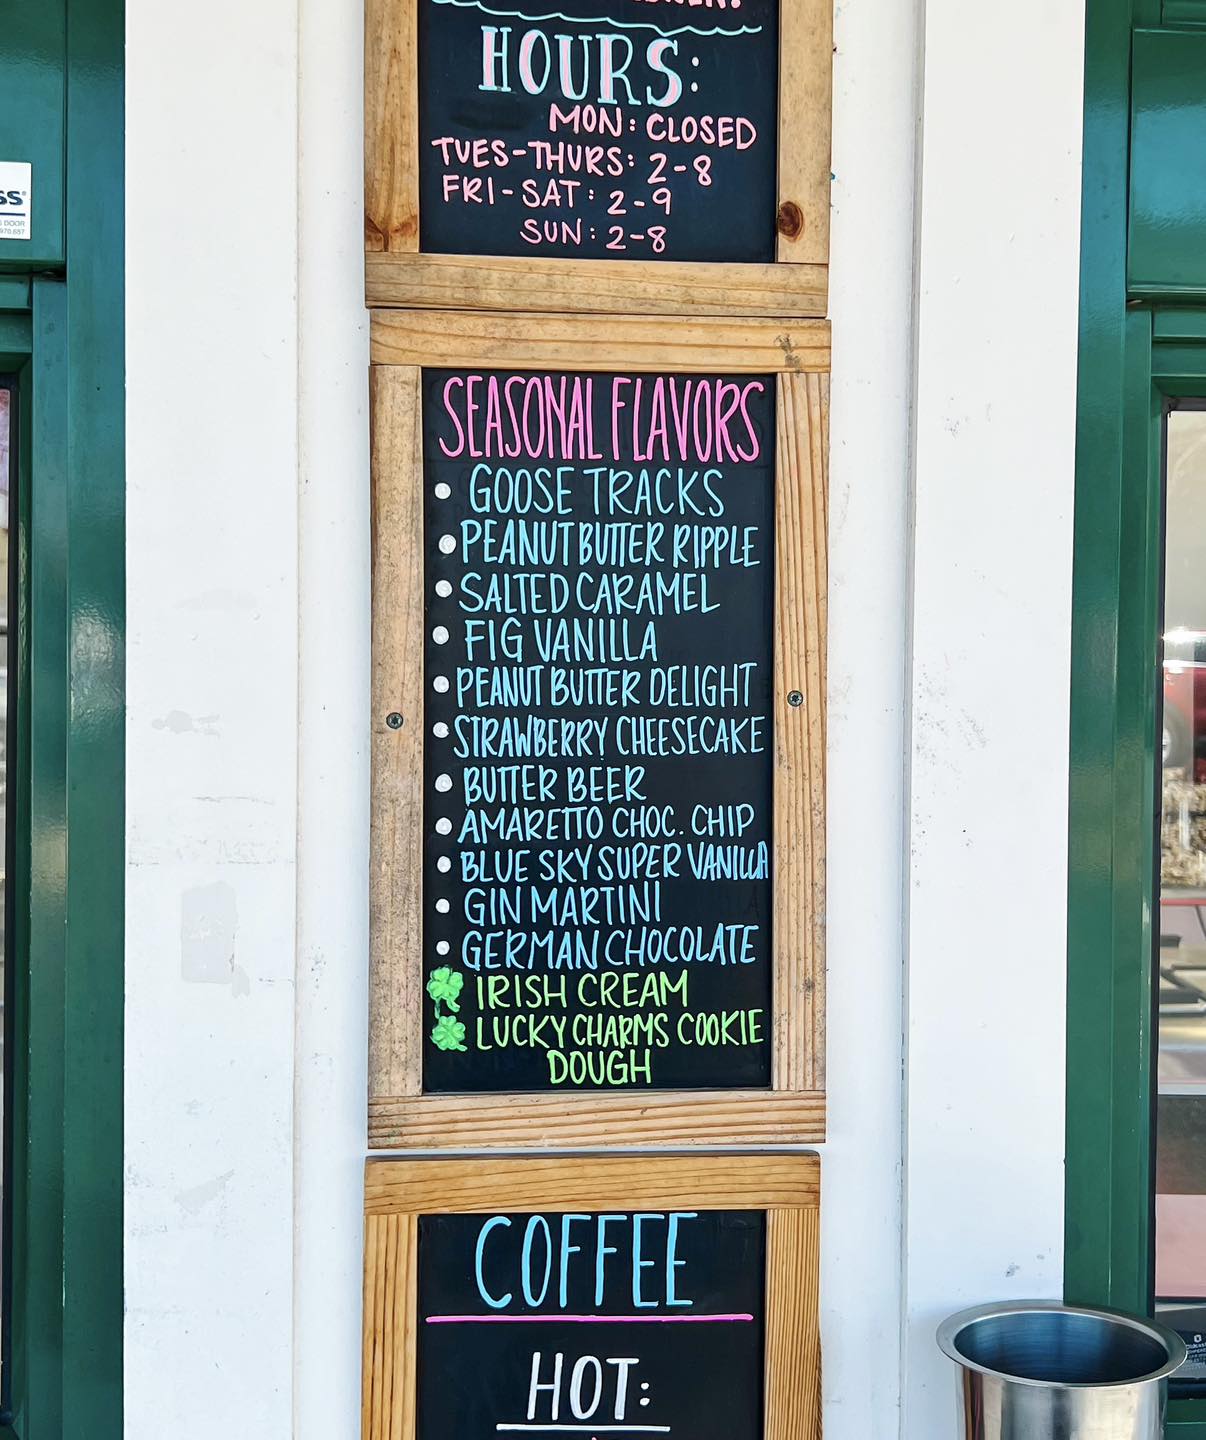 HOURS:
MON: CLOSED
TUES-THURS: 2-8
FRI-SAT: 2-9
SUN: 2-8
SEASONAL FLAVORS
GOOSE TRACKS
PEANUT BUTTER RIPPLE
SALTED CARAMEL
FIG VANILLA
PEANUT BUTTER DELIGHT
STRAWBERRY CHEESECAKE
BUTTER BEER
AMARETTO CHOC. CHIP
BLUE SKY SUPER VANILLA
GIN MARTINI
GERMAN CHOCOLATE
IRISH CREAM
LUCKY CHARMS COOKIE
DOUGH
COFFEE
HOT:
DOOR